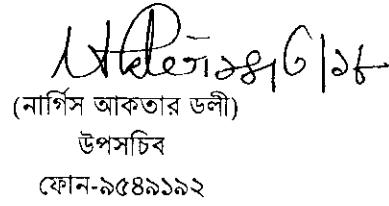 (নার্গিস আকতার ডলী)
উপসচিব
ফোন-৯৫৪৯১৯২